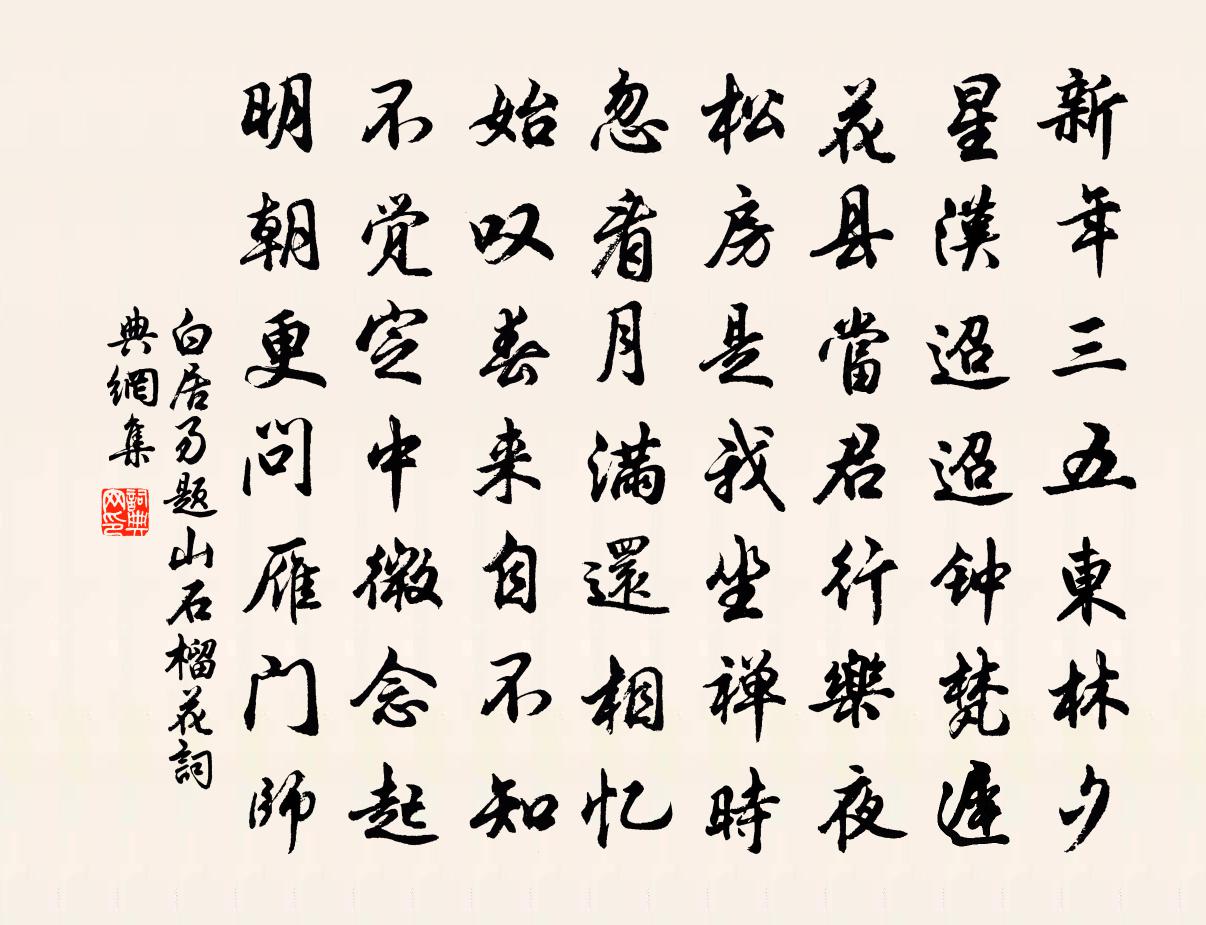 新年三五東林夕
星漢迢迢钟梵遲
花县當君行樂夜
松房是我坐禅時
忽看月满還相忆
始叹春来自不知
不觉定中微念起
明朝更问雁门師
白居易题山石榴花詞
典網集
詞典网印